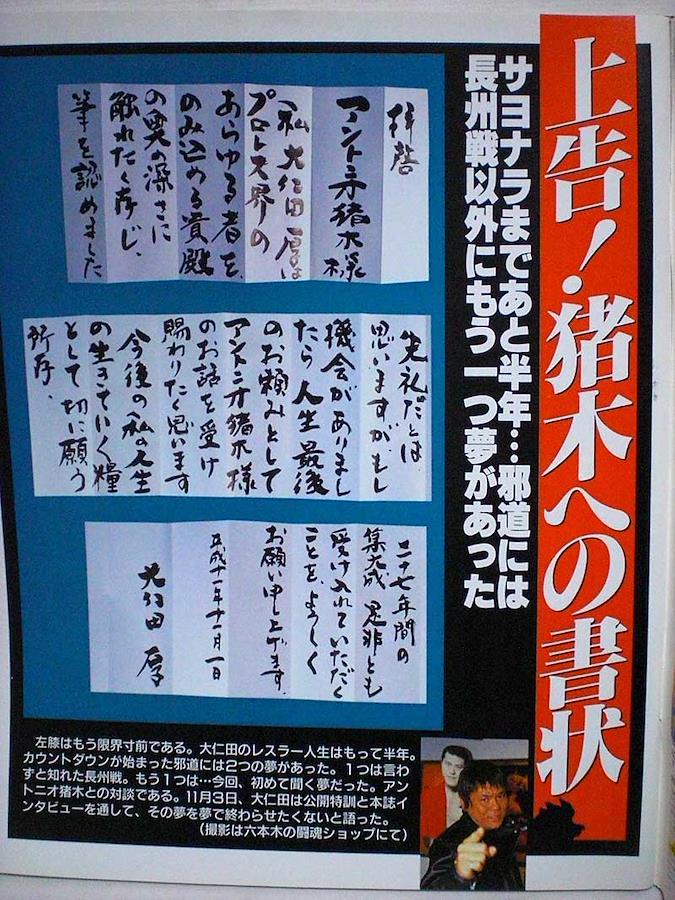 上告！猪木への書状
サヨナラまであと半年…邪道には
長州戦以外にもう一つ夢があった
拝啓
アントニオ猪木様
私大仁田厚は
プロレス界の
あらゆる者を
のみ込める貴殿
の懐の深さに
触れたく存じ、
筆を認めました
失礼だとは
思いますが、もし
機会がありまし
たら人生最後
のお頼みとして
アントニオ猪木様
のお話を受け
賜わりたく思います
今後の私の人生
の生きていく糧
として切に願う
所存、
二十七年間の
集大成 是非とも
受け入れていただく
ことを、よろしく
お願い申し上げます。
平成十一年十一月一日
大仁田 厚
左膝はもう限界寸前である。大仁田のレスラー人生はもって半年。
カウントダウンが始まった邪道には2つの夢があった。1つは言わ
ずと知れた長州戦。もう1つは…今回、初めて聞く夢だった。アン
トニオ猪木との対談である。11月3日、大仁田は公開特訓と本誌イ
ンタビューを通して、その夢を夢で終わらせたくないと語った。
（撮影は六本木の闘魂ショップにて）